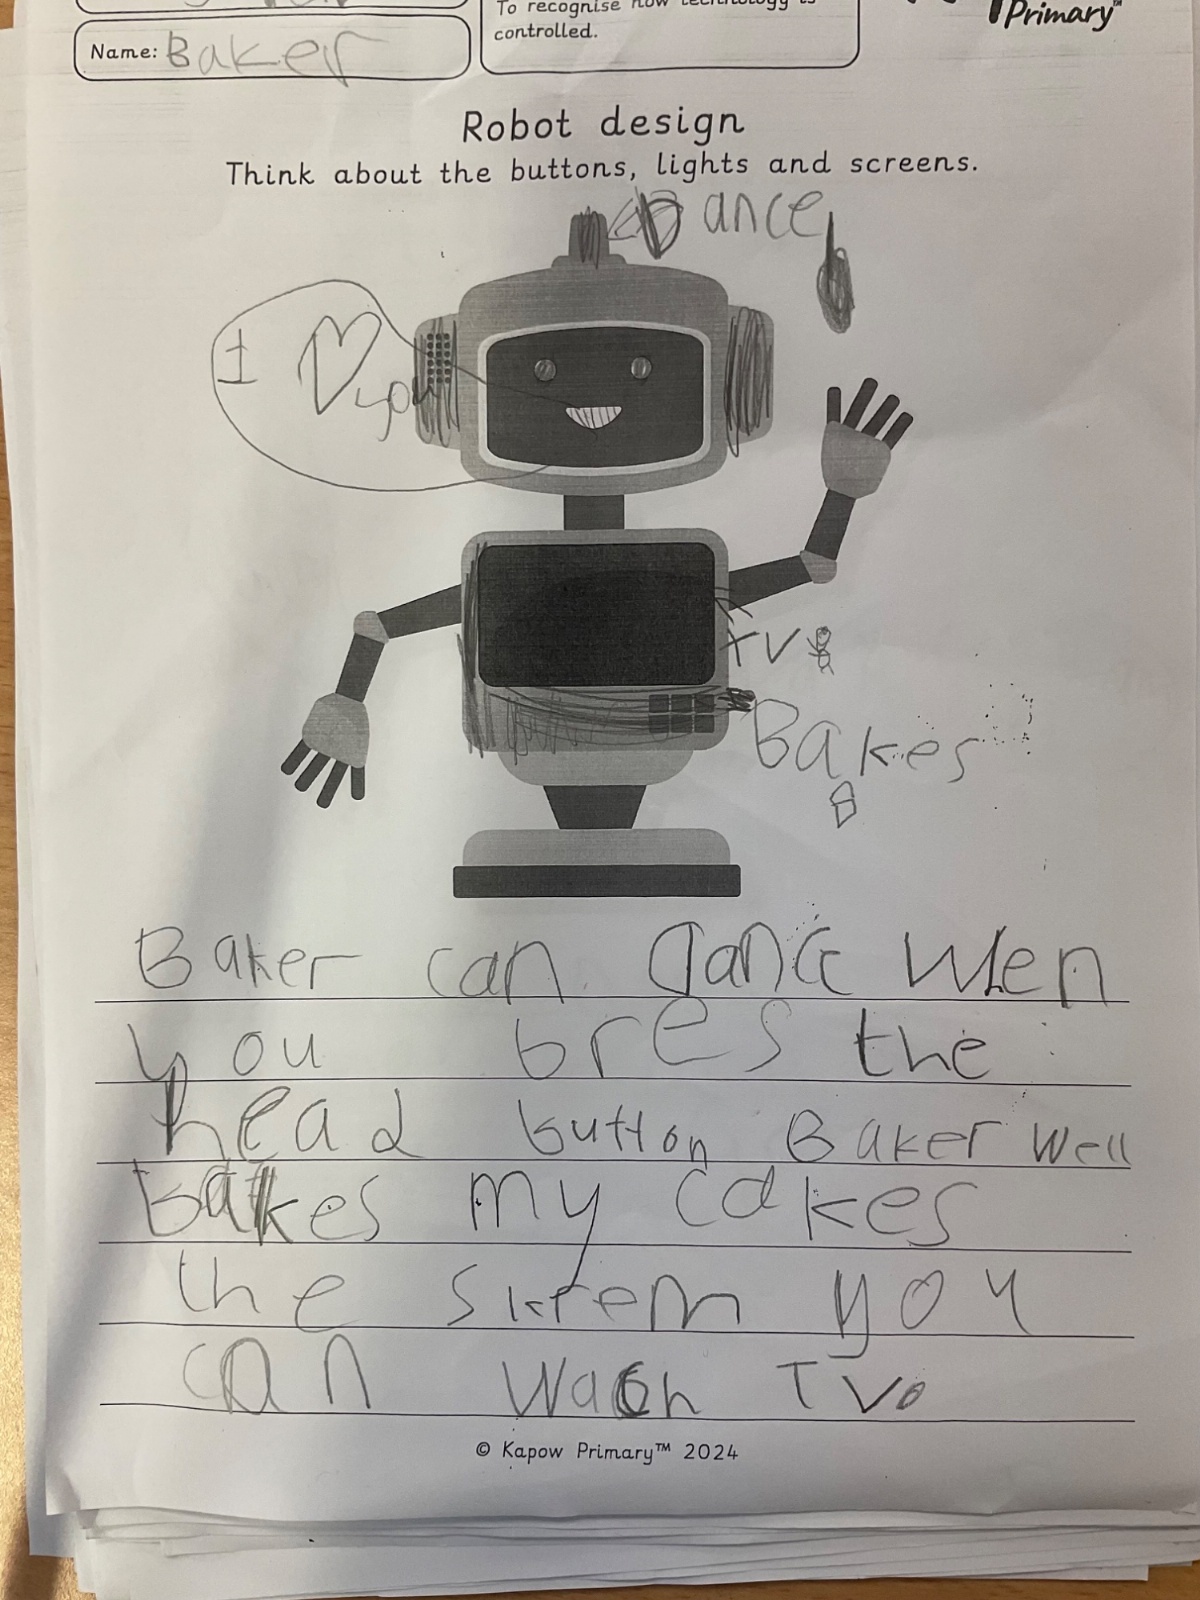 To recognise how technology is
controlled.
Primary™
Name: Baker
Robot design
Think about the buttons, lights and screens.
Dance
I ♡ you
TV
Bakes
Baker can dance wen
you bres the
head button Baker well
bakes my cakes
the skrem you
can wach TV.
© Kapow Primary™ 2024